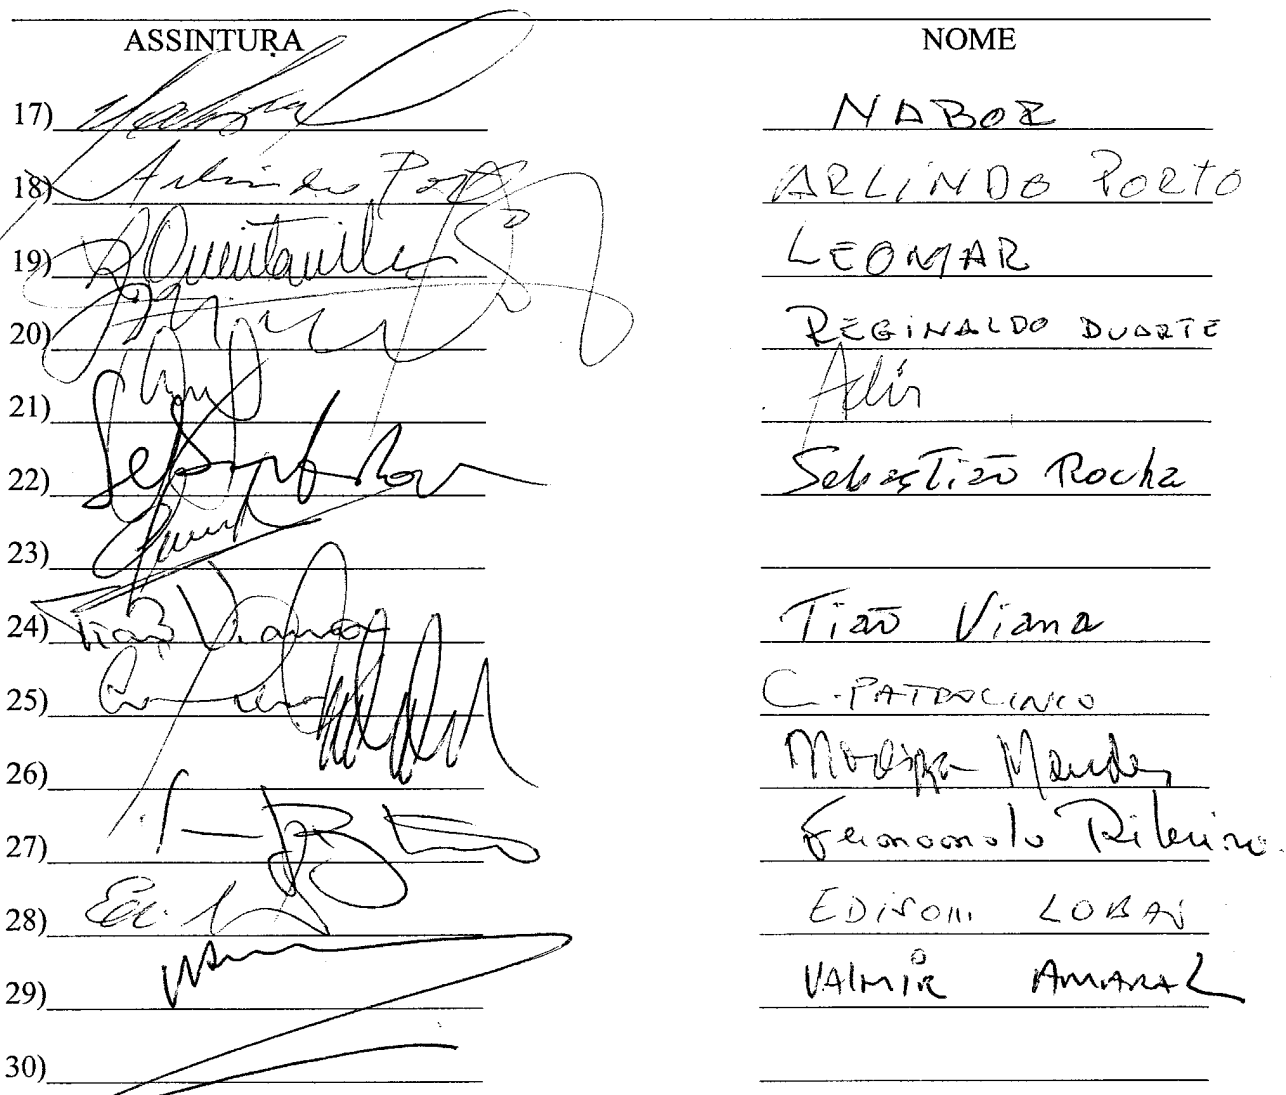 ASSINTURA NOME
17) NABOR
18) Arlindo Porto ARLINDO PORTO
19) Quintanilha LEOMAR
20) REGINALDO DUARTE
21) Adir
22) Sebastião Rocha
23)
24) Tião Viana Tião Viana
25) C. PATROCINIO
26) Moreira Mendes
27) Fernando Ribeiro
28) EDISON LOBÃO
29) VALMIR AMARAL
30)